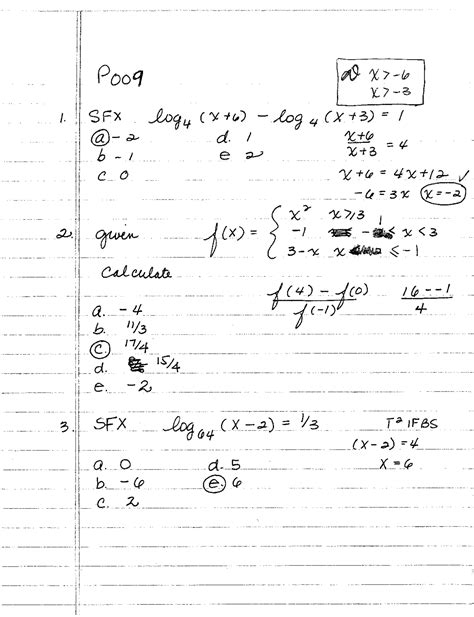 P009
x > -6
x > -3
1. SFX log₄ (x+6) - log₄ (x+3) = 1
a - 2 d. 1
b - 1 e 2
c 0
x+6
x+3 = 4
x+6 = 4x+12 ✓
-6 = 3x x = -2
2. given f(x) = { x² x ≥ 3
-1 x < 3
3-x x ≤ -1
Calculate
f(4) - f(0) 16 - -1
f(-1) 4
a. -4
b. 11/3
c. 17/4
d. 15/4
e. -2
3. SFX log₆₄ (x-2) = 1/3 T² IFBS
(x-2) = 4
x = 6
a. 0 d. 5
b. -6 e. 6
c. 2